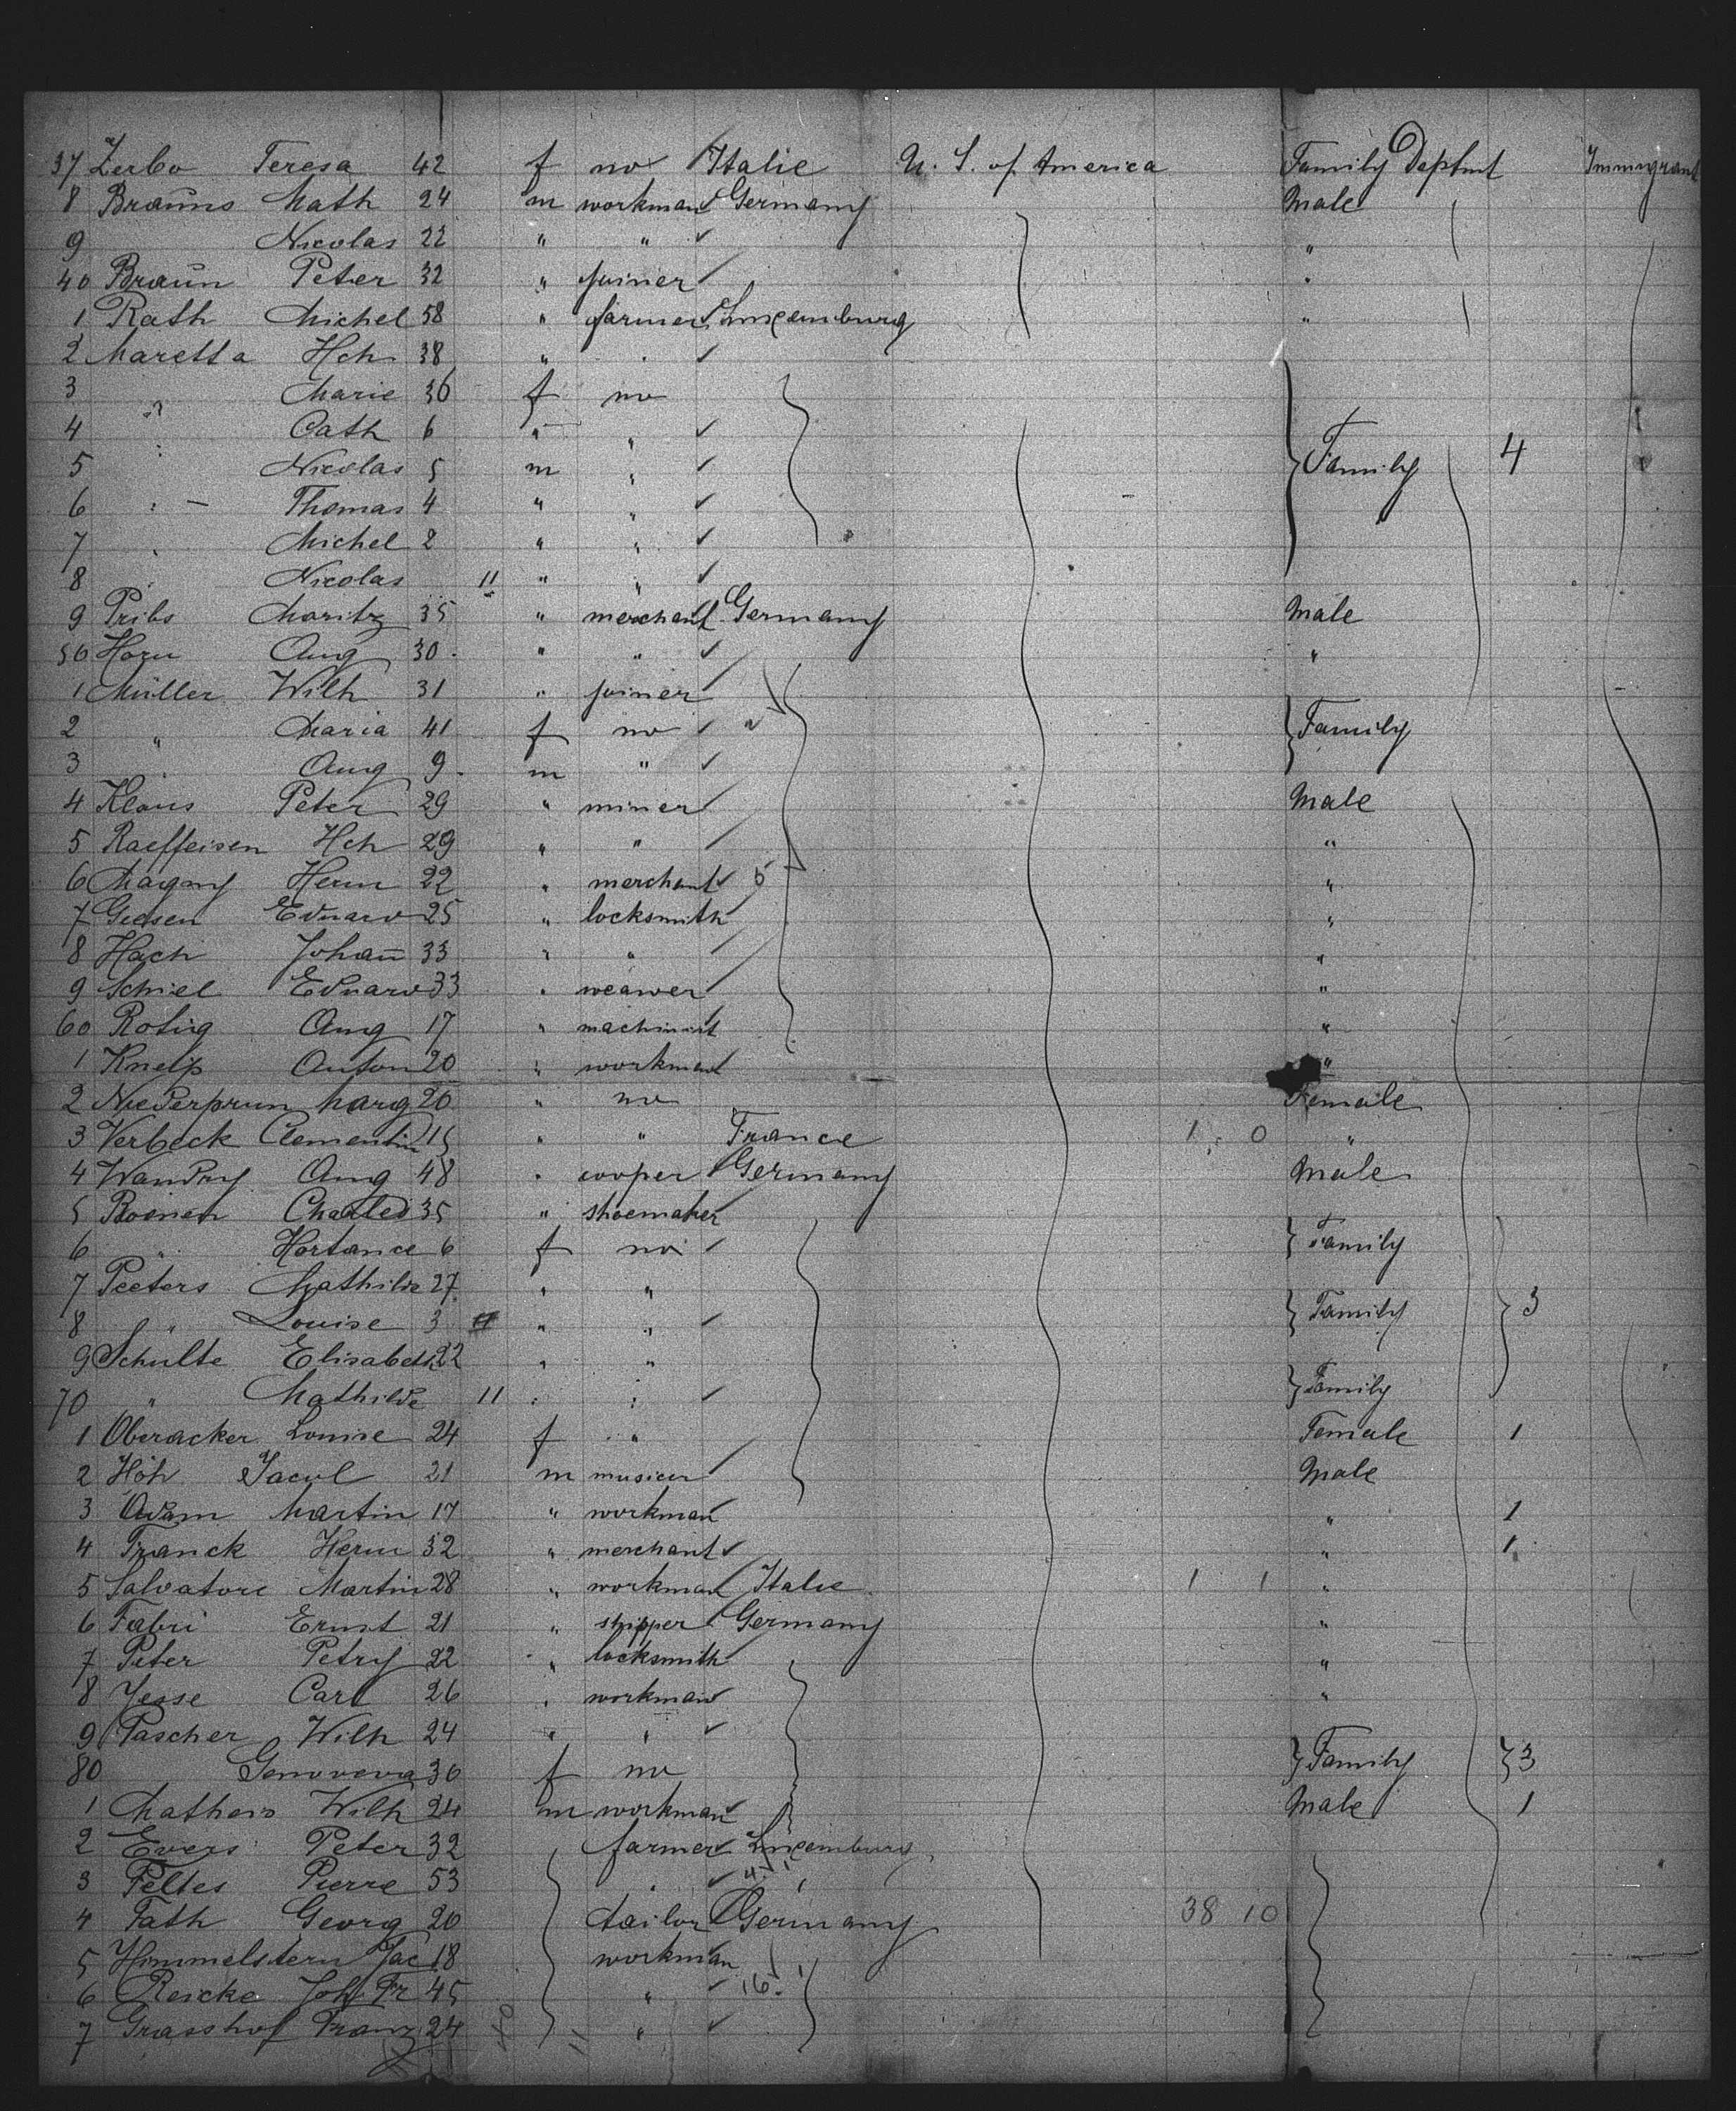 37 Zerbo Teresa 42 f no Italie U. S. of America Family Deptmt Immigrant
8 Brauns Math 24 m workman Germany Male
9 Nicolas 22 " " "
40 Braun Peter 32 " joiner "
1 Rath Michel 58 " farmer Luxemburg "
2 Maretta Hch 38 " "
3 " Marie 36 f no
4 " Cath 6 " "
5 Nicolas 5 m " Family 4
6 " — Thomas 4 " "
7 " Michel 2 " "
8 " Nicolas 11 " "
9 Pribs Moritz 35 " merchant Germany Male
50 Horn Aug 30 " " "
1 Müller Wilh 31 " joiner
2 " Maria 41 f no Family
3 " Aug 9 m "
4 Klaus Peter 29 " miner Male
5 Raeffeisen Hch 29 " " "
6 Magony Herm 22 " merchant 5 "
7 Giesen Eduard 25 " locksmith "
8 Hach Johan̄ 33 " " "
9 Schiel Eduard 33 " weawer "
60 Rotig Aug 17 " machinist "
1 Kneip Anton 20 " workman "
2 Niederprum Marg 20 " no Female
3 Verbeck Clementin 15 " " France 1 0 "
4 Wandry Aug 48 " cooper Germany Male
5 Boenen Charles 35 " shoemaker
6 " Hortance 6 f no Family
7 Peeters Mathilde 27 " "
8 " Louise 3 " " Family 3
9 Schulte Elisabeth 22 " "
70 " Mathilde 11 " " Family
1 Oberacker Louise 24 f " Female 1
2 Höh Jacob 21 m musicer Male
3 Adam Martin 17 " workman " 1
4 Franck Herm 32 " merchant " 1
5 Salvatore Martin 28 " workman Italie 1 1 "
6 Fabri Ernst 21 " shipper Germany "
7 Peter Petry 22 " locksmith "
8 Jesse Carl 26 " workman "
9 Pascher Wilh 24 " "
80 Genoveva 30 f no Family 3
1 Matheis Wilh 24 m workman Male 1
2 Evers Peter 32 farmer Luxemburg
3 Feltes Pierre 53 " 4
4 Fath Georg 20 tailor Germany 38 10
5 Himmelstern Jac 18 workman
6 Reicke Joh Fr 45 " 16
7 Grasshof Franz 24 "